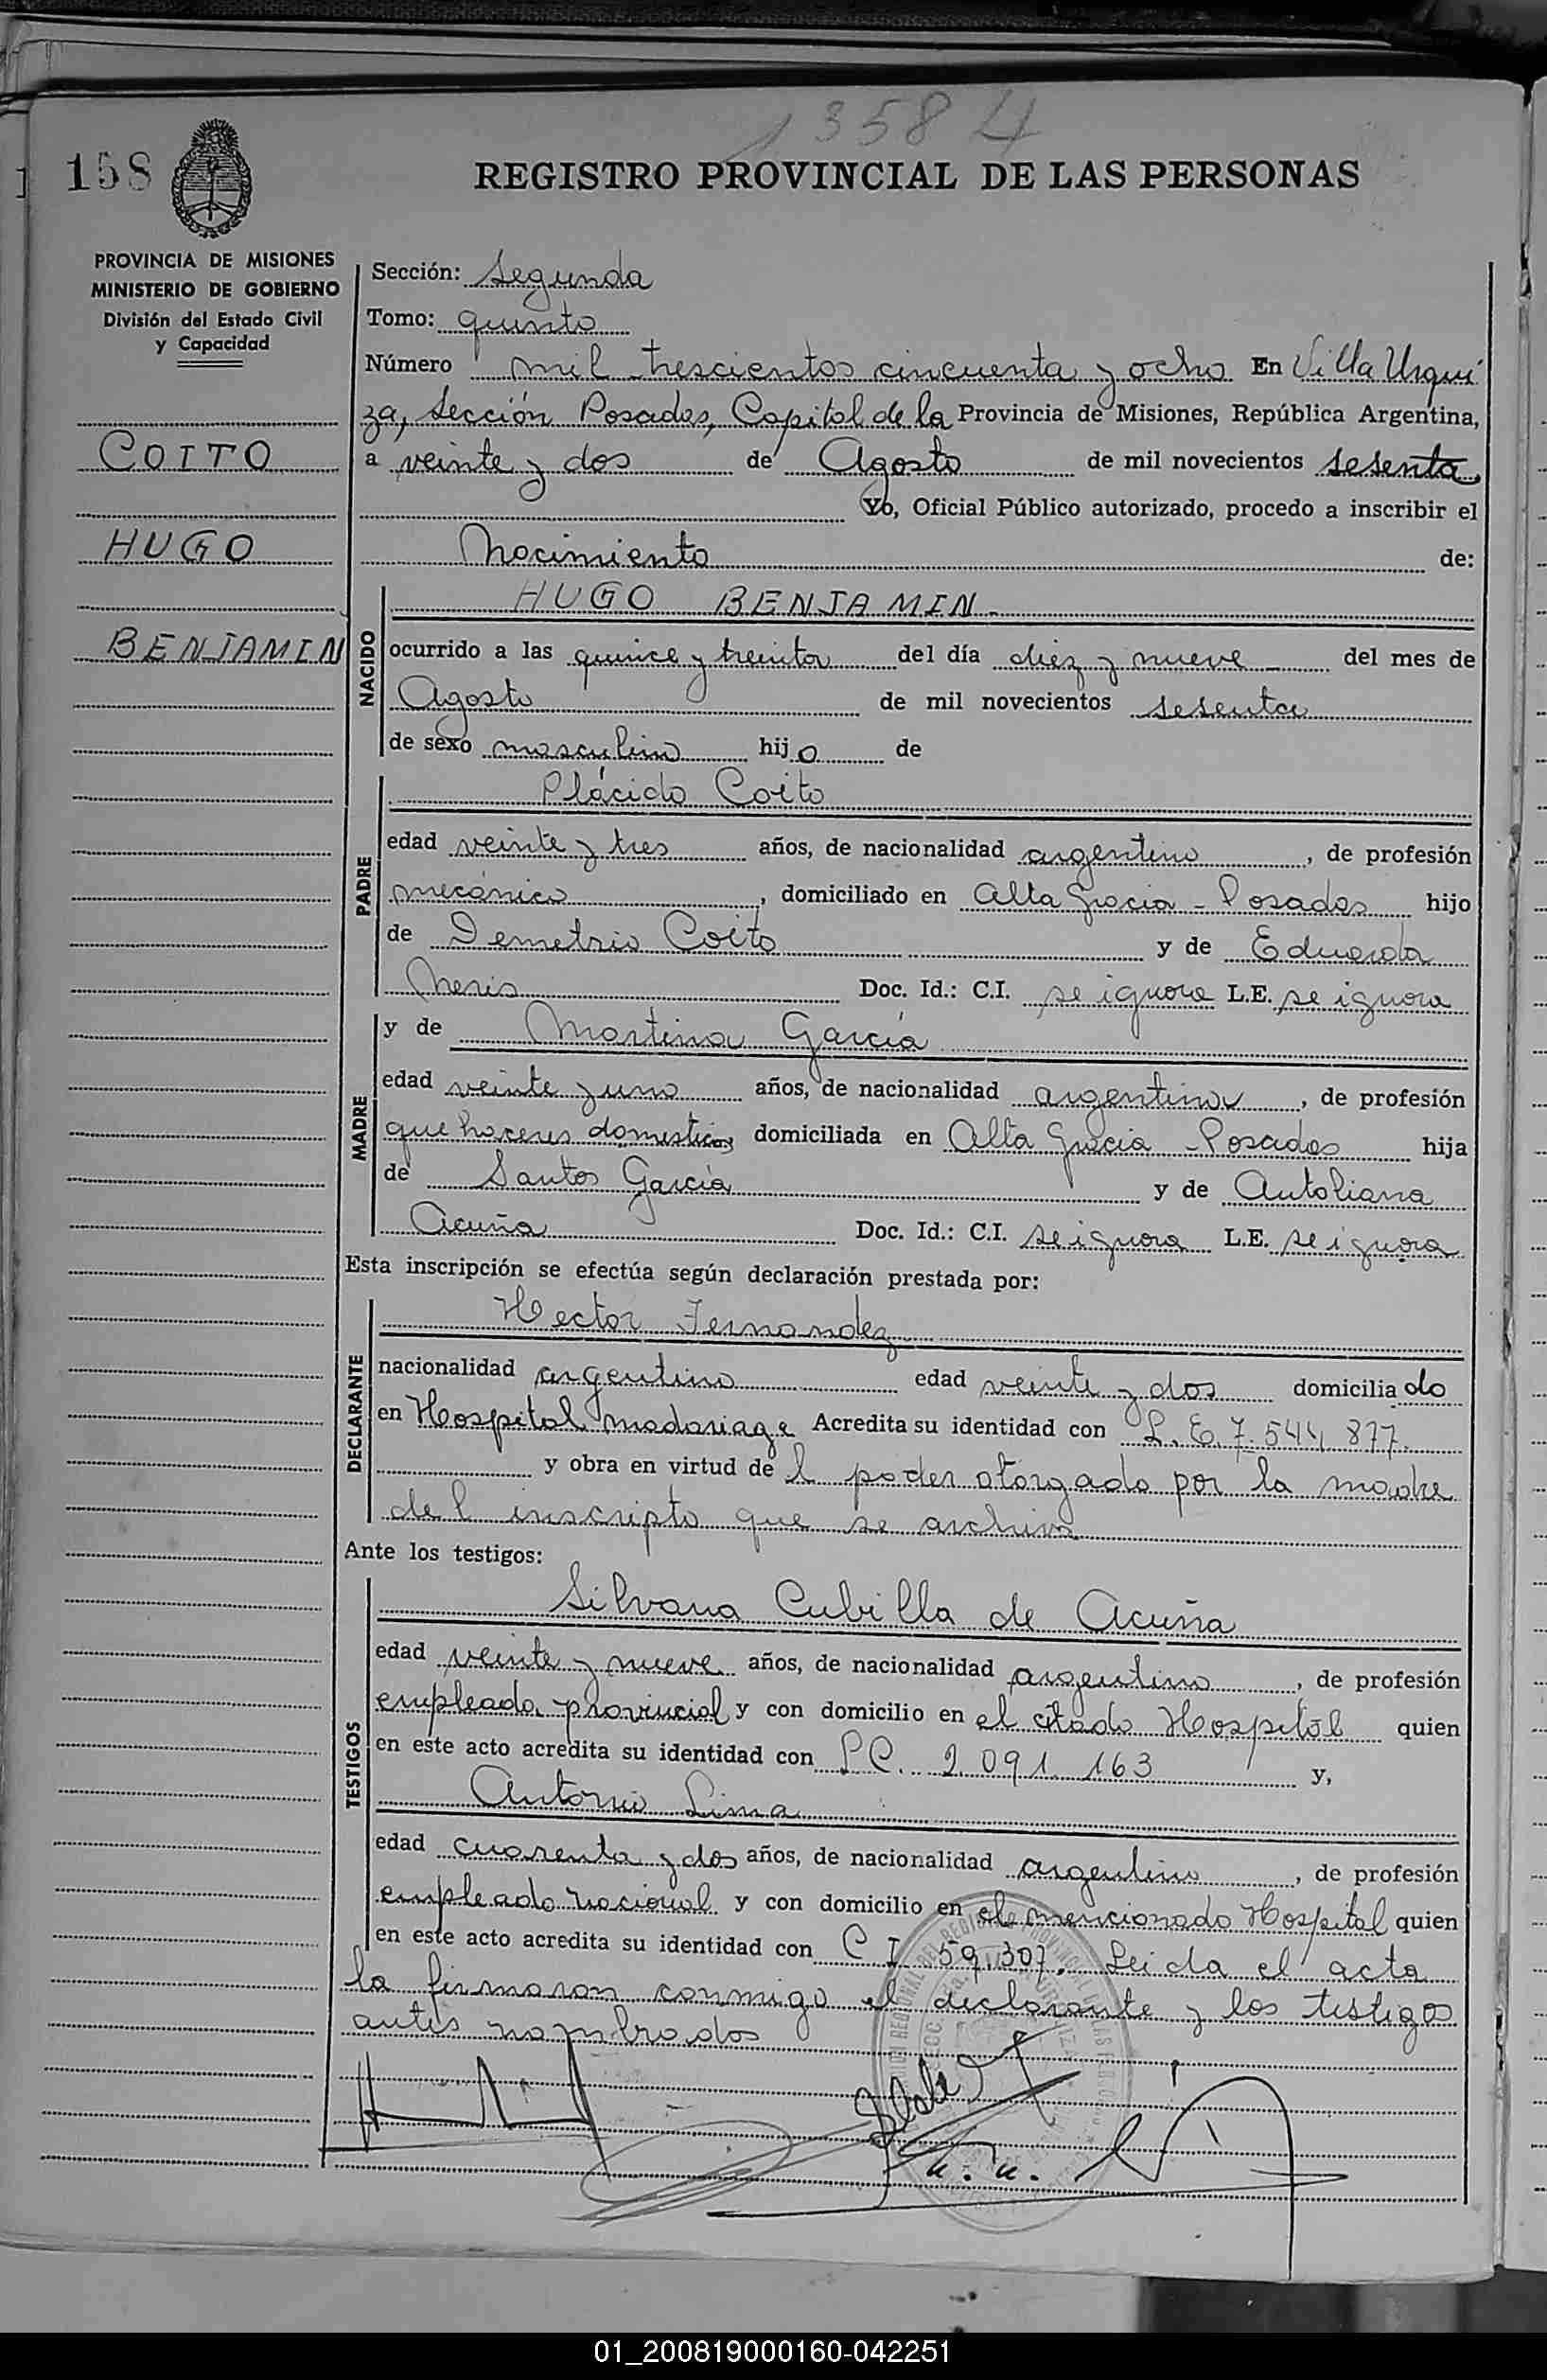 13584
158
REGISTRO PROVINCIAL DE LAS PERSONAS
PROVINCIA DE MISIONES
MINISTERIO DE GOBIERNO
División del Estado Civil
y Capacidad
COITO
HUGO
BENJAMIN
Sección: Segunda
Tomo: quinto
Número mil trescientos cincuenta y ocho En Villa Urqui
za, Sección Posadas, Capital de la Provincia de Misiones, República Argentina,
a veinte y dos de Agosto de mil novecientos sesenta
Yo, Oficial Público autorizado, procedo a inscribir el
Nacimiento de:
NACIDO
HUGO BENJAMIN.
ocurrido a las quince y treinta del día diez y nueve del mes de
Agosto de mil novecientos sesenta
de sexo masculino hijo de
PADRE
Plácido Coito
edad veinte y tres años, de nacionalidad argentino, de profesión
mecánico, domiciliado en Alta Gracia - Posadas hijo
de Demetrio Coito y de Eduarda
Neris Doc. Id.: C.I. se ignora L.E. se ignora
MADRE
y de Martina García
edad veinte y uno años, de nacionalidad argentina, de profesión
que haceres domesticos domiciliada en Alta Gracia - Posadas hija
de Santos García y de Autoliana
Acuña Doc. Id.: C.I. se ignora L.E. se ignora
Esta inscripción se efectúa según declaración prestada por:
DECLARANTE
Hector Fernandez
nacionalidad argentino edad veinte y dos domiciliado
en Hospital Madariaga Acredita su identidad con L.E. 7.544.877.
y obra en virtud del poder otorgado por la madre
del inscripto que se archiva
Ante los testigos:
TESTIGOS
Silvana Cubilla de Acuña
edad veinte y nueve años, de nacionalidad argentino, de profesión
empleada provincial y con domicilio en el citado Hospital quien
en este acto acredita su identidad con 2.091.163 y,
Antonio Lima
edad cuarenta y dos años, de nacionalidad argentino, de profesión
empleado nacional y con domicilio en el mencionado Hospital quien
en este acto acredita su identidad con C I 59.307. Leida el acta
la firmaron conmigo el declarante y los testigos
antes nombrados
01_200819000160-042251